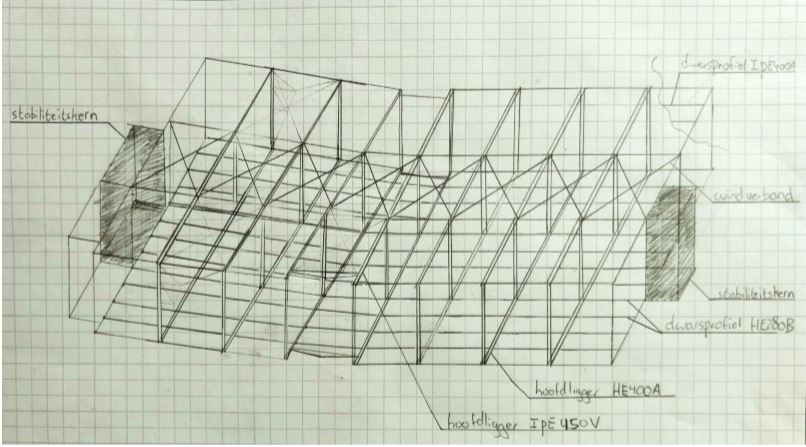 dwarsprofiel IPE400A
stabiliteitskern
windverband
stabiliteitskern
dwarsprofiel HE180B
hoofdligger HE400A
hoofdligger IPE 450V